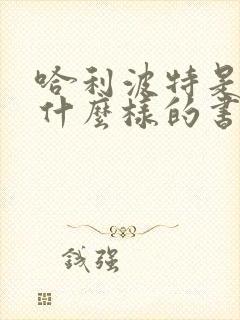 哈利波特是
什麼樣的書
钱强